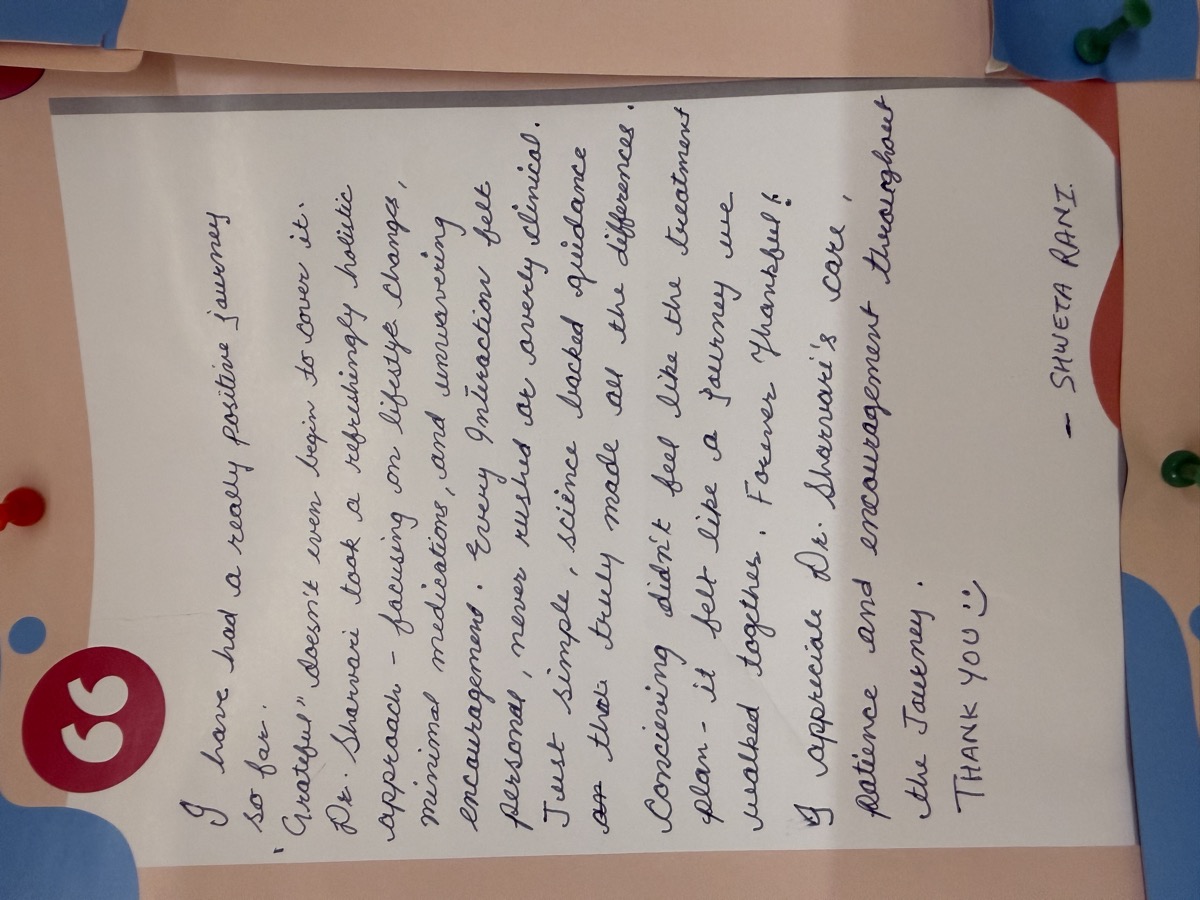 I have had a really positive journey
so far.
"Grateful" doesn't even begin to cover it.
Dr. Sharvari took a refrushingly holistic
approach - focusing on lifestyle changes,
minimal medications, and unwavering
encouragement. Every Interaction felt
personal, never rushed or overly clinical.
Just simple, science backed guidance
that truly made all the differences.
Concieving didn't feel like the treatment
plan - it felt like a journey we
walked together. Forever Thankful!
I appreciate Dr. Sharvari's care,
patience and encouragement throughout
the Journey.
THANK YOU :)
- SHWETA RANI.